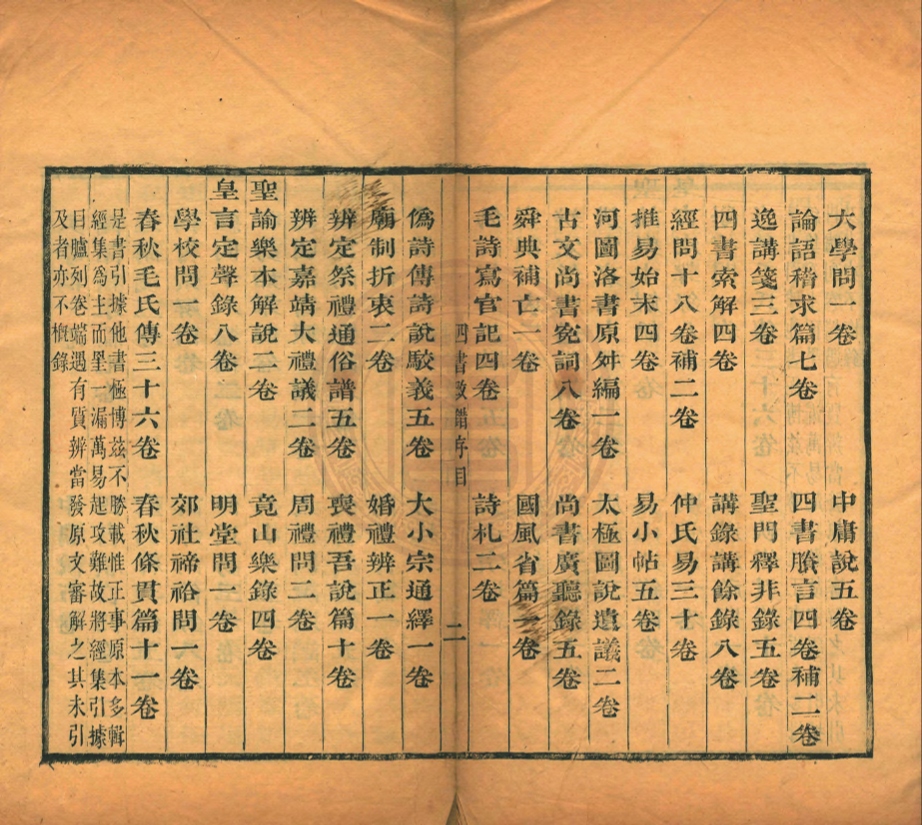 大學問一卷　中庸說五卷
論語稽求篇七卷　四書賸言四卷補二卷
逸講箋三卷　聖門釋非錄五卷
四書索解四卷　講錄講餘錄八卷
經問十八卷補二卷　仲氏易三十卷
推易始末四卷　易小帖五卷
河圖洛書原舛編一卷　太極圖說遺議二卷
古文尚書寃詞八卷　尚書廣聽錄五卷
舜典補亡一卷　國風省篇一卷
毛詩寫官記四卷　詩札二卷
四書改錯存目　二
僞詩傳詩說駁義五卷　大小宗通繹一卷
廟制折衷二卷　婚禮辨正一卷
辨定祭禮通俗譜五卷　喪禮吾說篇十卷
辨定嘉靖大禮議二卷　周禮問二卷
聖諭樂本解說二卷　竟山樂錄四卷
皇言定聲錄八卷　明堂問一卷
學校問一卷　郊社禘祫問一卷
春秋毛氏傳三十六卷　春秋條貫篇十一卷
是書引據他書極博茲不勝載惟正事原本多輯
經集爲主而罣一漏萬易起攻難故將經集引據
目臚列卷端遇有質辨當發原文審解之其未引
及者亦不概錄